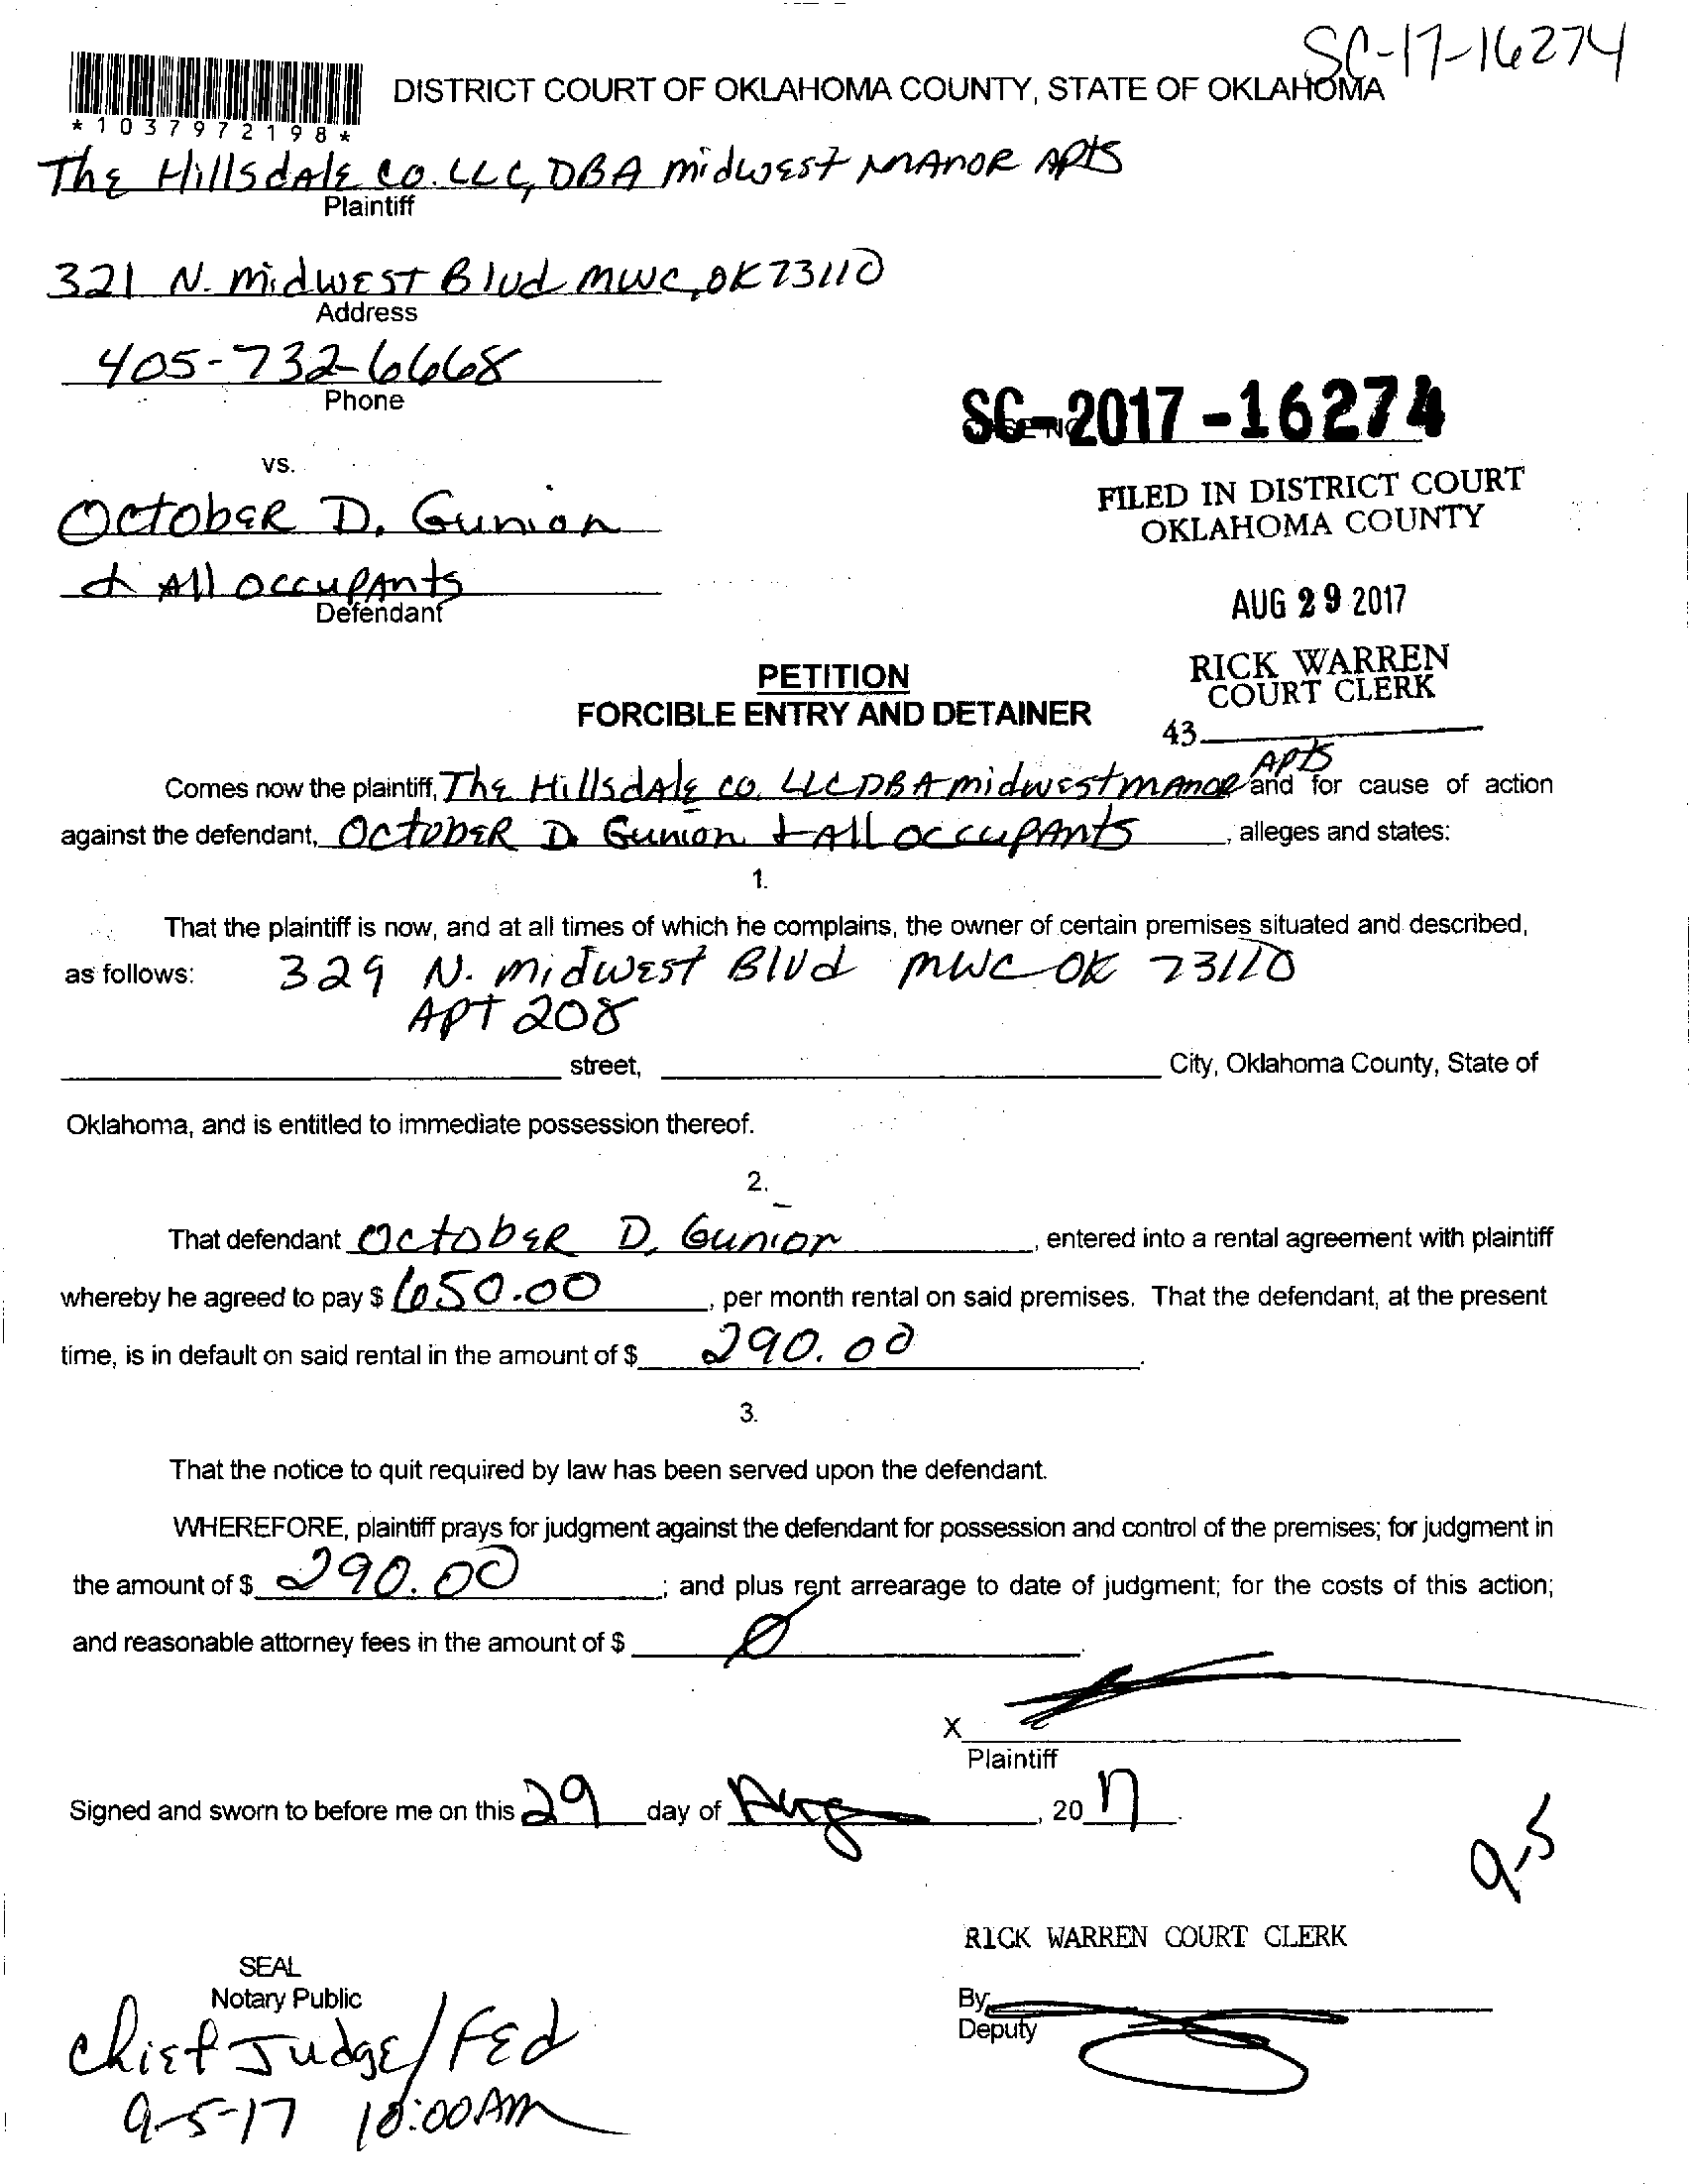 SC-17-16274
DISTRICT COURT OF OKLAHOMA COUNTY, STATE OF OKLAHOMA
*1037972198*
The Hillsdale Co. LLC, DBA Midwest Manor Apts
Plaintiff
321 N. Midwest Blvd MWC, OK 73110
Address
405-732-6668
Phone
SC-2017-16274
vs.
FILED IN DISTRICT COURT
OKLAHOMA COUNTY
October D. Gunion
& All occupants
Defendant
AUG 29 2017
RICK WARREN
COURT CLERK
43
PETITION
FORCIBLE ENTRY AND DETAINER
Comes now the plaintiff, The Hillsdale Co. LLC DBA Midwest Manor Apts and for cause of action
against the defendant, October D. Gunion & All occupants, alleges and states:
1.
That the plaintiff is now, and at all times of which he complains, the owner of certain premises situated and described,
as follows: 329 N. Midwest Blvd MWC OK 73110
APT 208
street, City, Oklahoma County, State of
Oklahoma, and is entitled to immediate possession thereof.
2.
That defendant October D. Gunion, entered into a rental agreement with plaintiff
whereby he agreed to pay $ 650.00, per month rental on said premises. That the defendant, at the present
time, is in default on said rental in the amount of $ 290.00.
3.
That the notice to quit required by law has been served upon the defendant.
WHEREFORE, plaintiff prays for judgment against the defendant for possession and control of the premises; for judgment in
the amount of $ 290.00; and plus rent arrearage to date of judgment; for the costs of this action;
and reasonable attorney fees in the amount of $ Ø.
X
Plaintiff
Signed and sworn to before me on this 29 day of Aug, 20 17.
9-5
RICK WARREN COURT CLERK
SEAL
Notary Public
By
Deputy
Chief Judge/FED
9-5-17 10:00AM